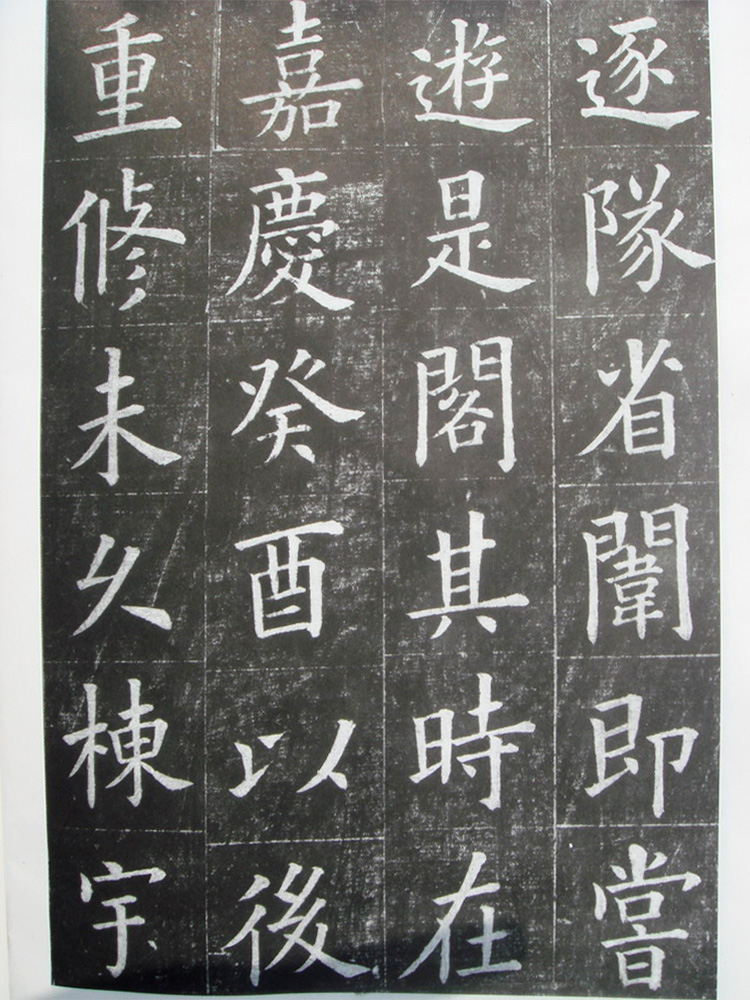 逐隊省闈即嘗
遊是閣其時在
嘉慶癸酉以後
重修未久棟宇